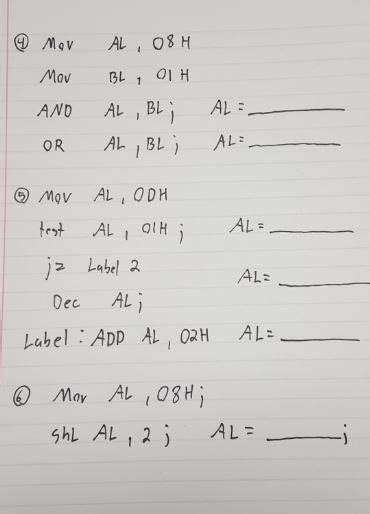 ④ Mov AL, 08H
Mov BL, 01H
AND AL, BL; AL = ________
OR AL, BL; AL = ________
⑤ Mov AL, 0DH
test AL, 01H; AL = ________
jz Label 2
AL = ________
Dec AL;
Label: ADD AL, 02H AL = ________
⑥ Mov AL, 08H;
ShL AL, 2; AL = ________;